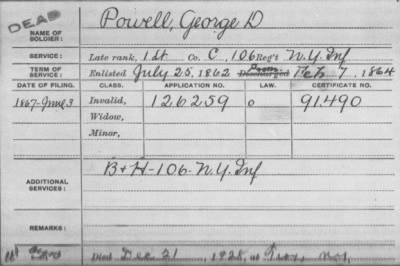 DEAD
NAME OF SOLDIER: Powell, George D
SERVICE: Late rank, 1st Co. C, 106 Reg't N.Y. Inf
TERM OF SERVICE: Enlisted July 25, 1862 Discharged Feb 7, 1864
DATE OF FILING. CLASS. APPLICATION NO. LAW. CERTIFICATE NO.
1867-June 3 Invalid, 126259 o 91.490
Widow,
Minor,
ADDITIONAL SERVICES: B & H-106-N.Y. Inf
REMARKS:
Died Dec 21, 1928, at